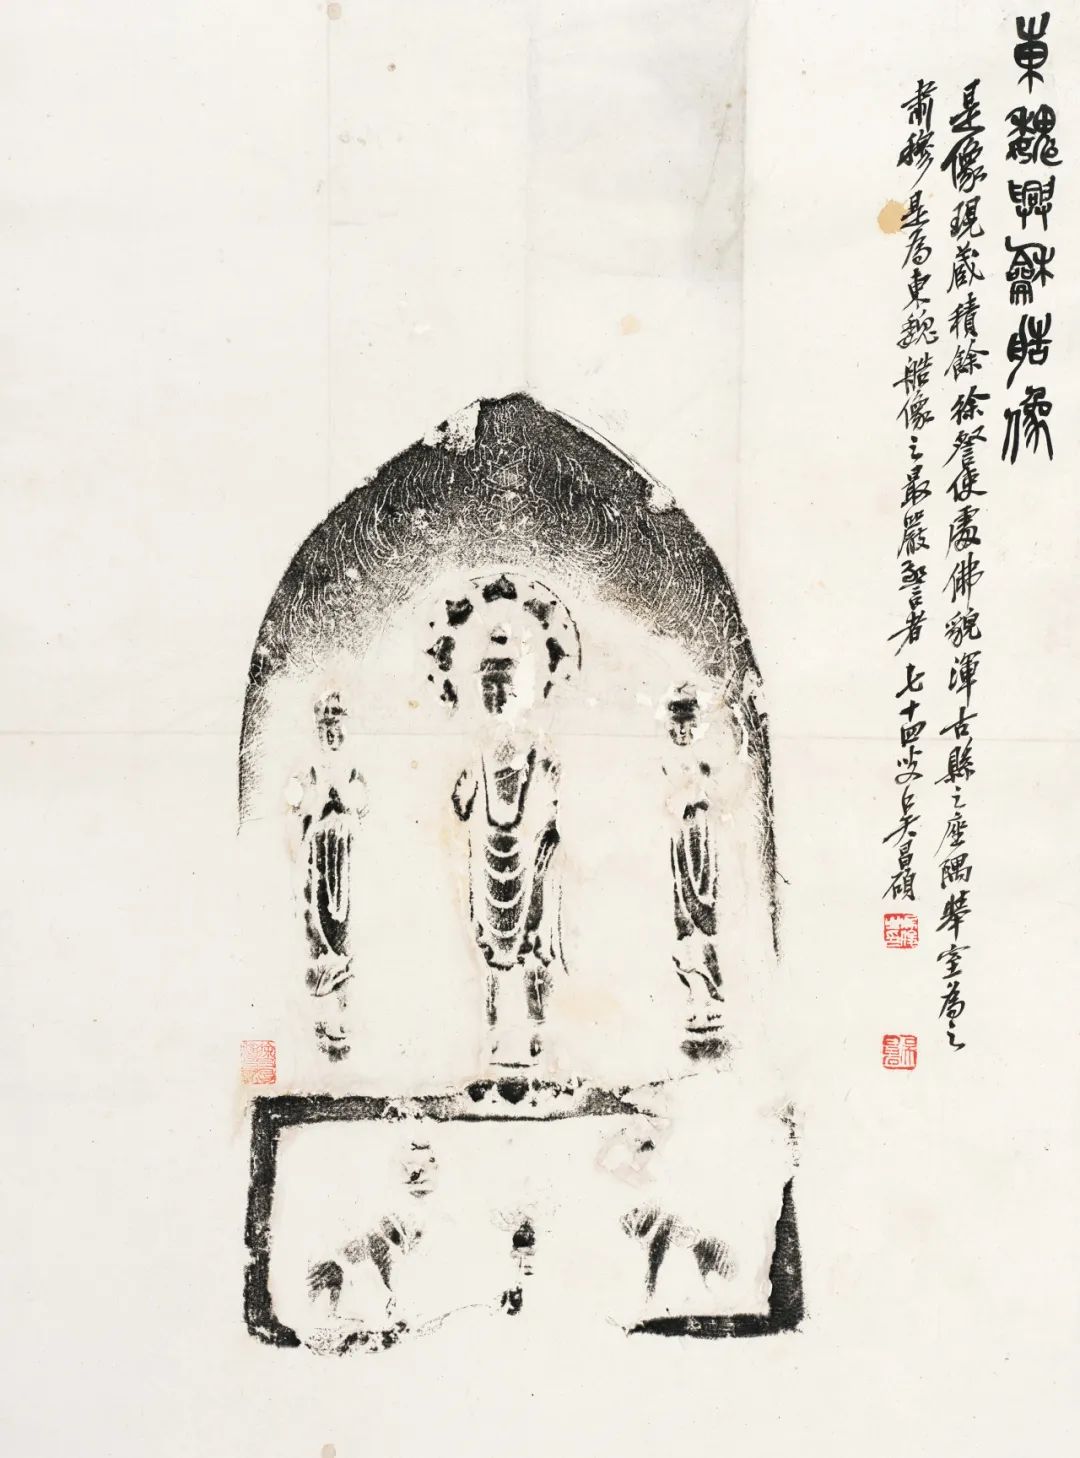 東魏興龢艁像
是像現藏積餘徐詧使處佛貌渾古縣之座隅舉室為之
肅穆是為東魏艁像之最嚴者七十四叟吳昌碩